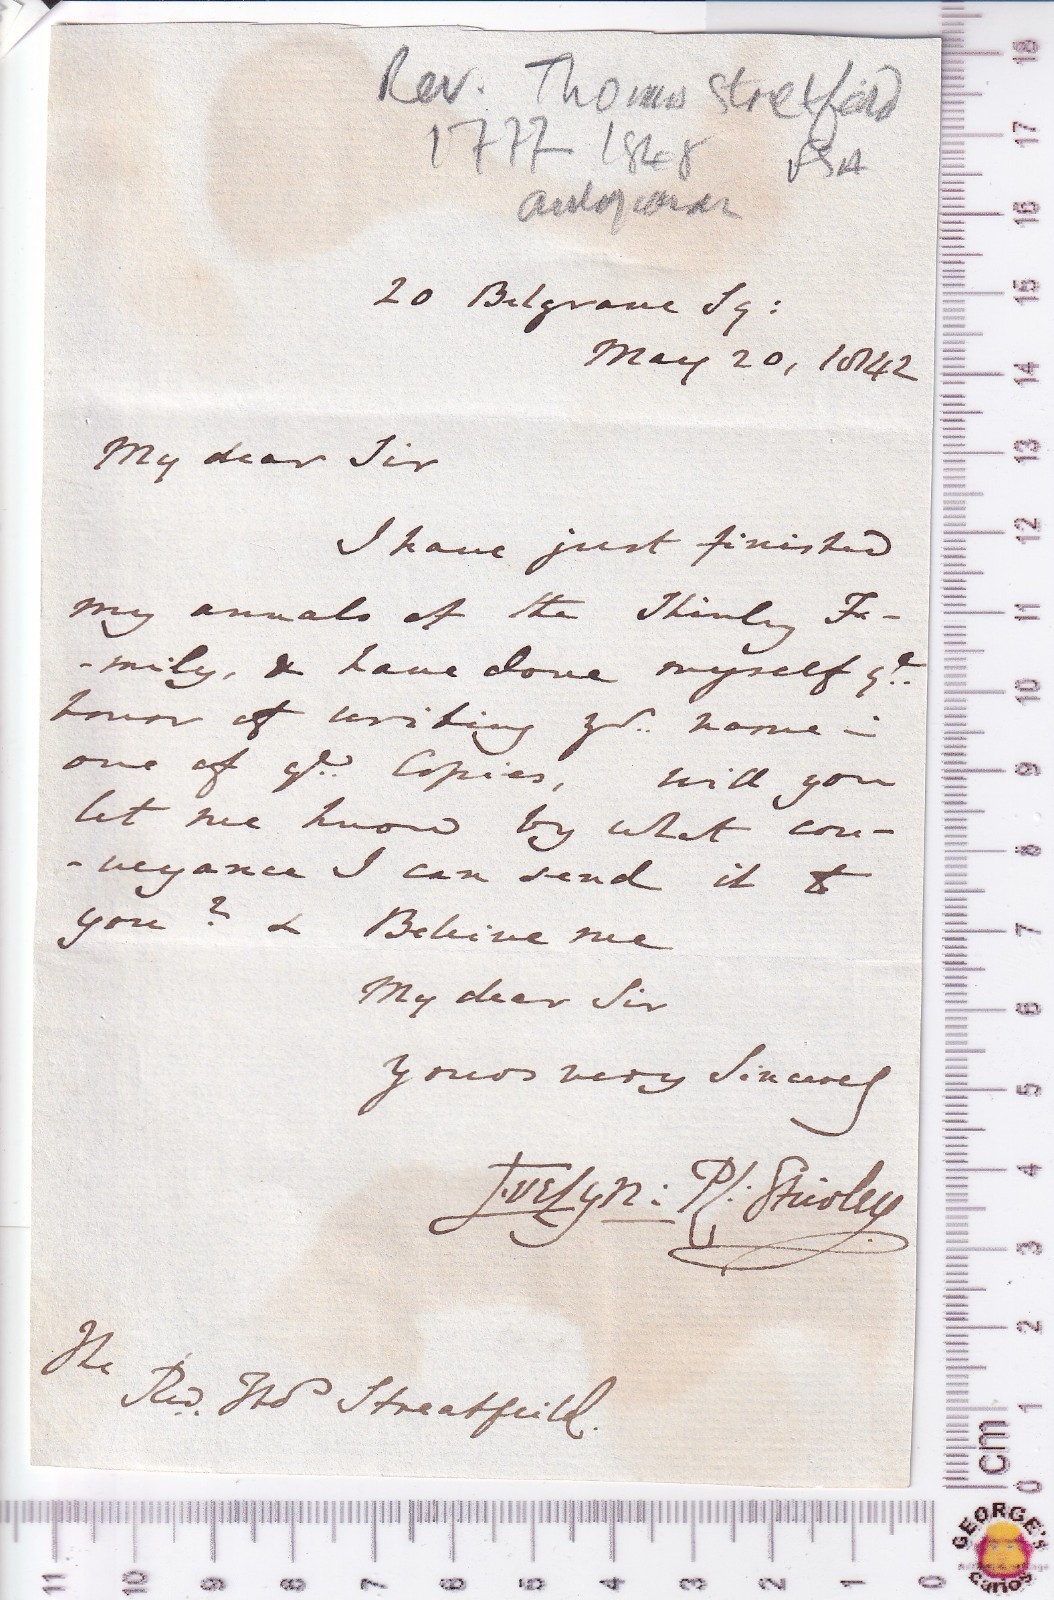 Rev. Thomas Stretfeild
1777 1848 FSA
antiquarian
20 Belgrave Sq:
May 20, 1842
My dear Sir
I have just finished
my annals of the Shirley Fa-
-mily, & have done myself ye..
honor of writing yr.. name in
one of ye.. Copies, will you
let me know by what con-
-veyance I can send it to
you? & Believe me
My dear Sir
Yours very Sincerely
Evelyn: Ph: Shirley
The
Rev. Thos Streatfeild.
18
17
16
15
14
13
12
11
10
9
8
7
6
5
4
3
2
1
0
cm
11 10 9 8 7 6 5 4 3 2 1 0
GEORGE'S
curios